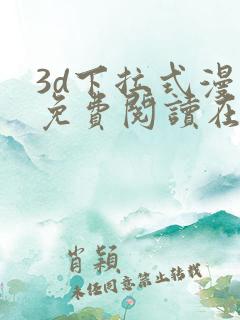 3d下拉式漫
免費閱讀在
肖穎
未经同意禁止转载